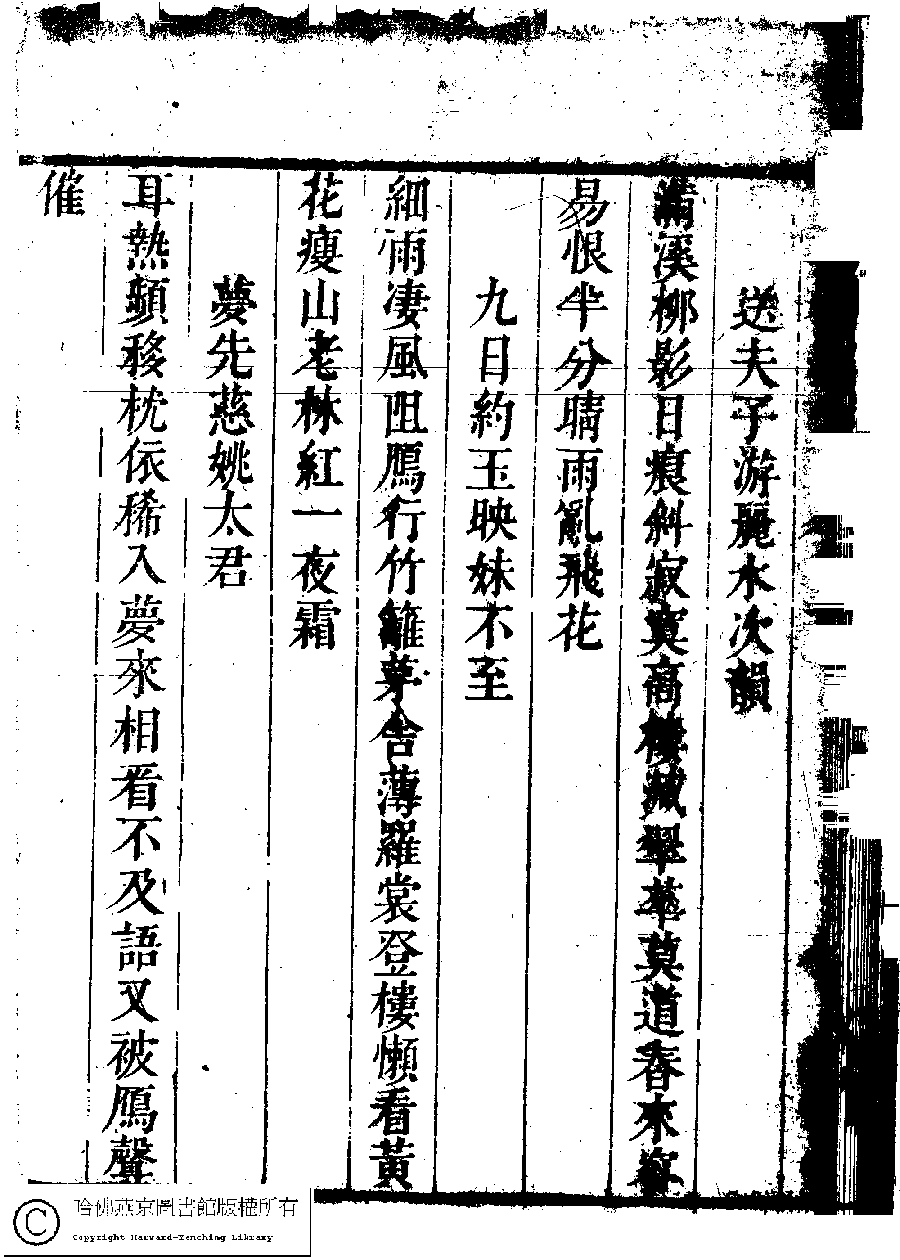 送夫子游麗水次韻
滿溪柳影日痕斜寂寞高樓藏翠華莫道春來容
易恨半分晴雨亂飛花
九日約玉映妹不至
細雨凄風阻鴈行竹籬茅舍薄羅裳登樓懶看黃
花瘦山老林紅一夜霜
夢先慈姚太君
耳熱頻移枕依稀入夢來相看不及語又被鴈聲
催
哈佛燕京圖書館版權所有
Copyright Harvard-Yenching Library